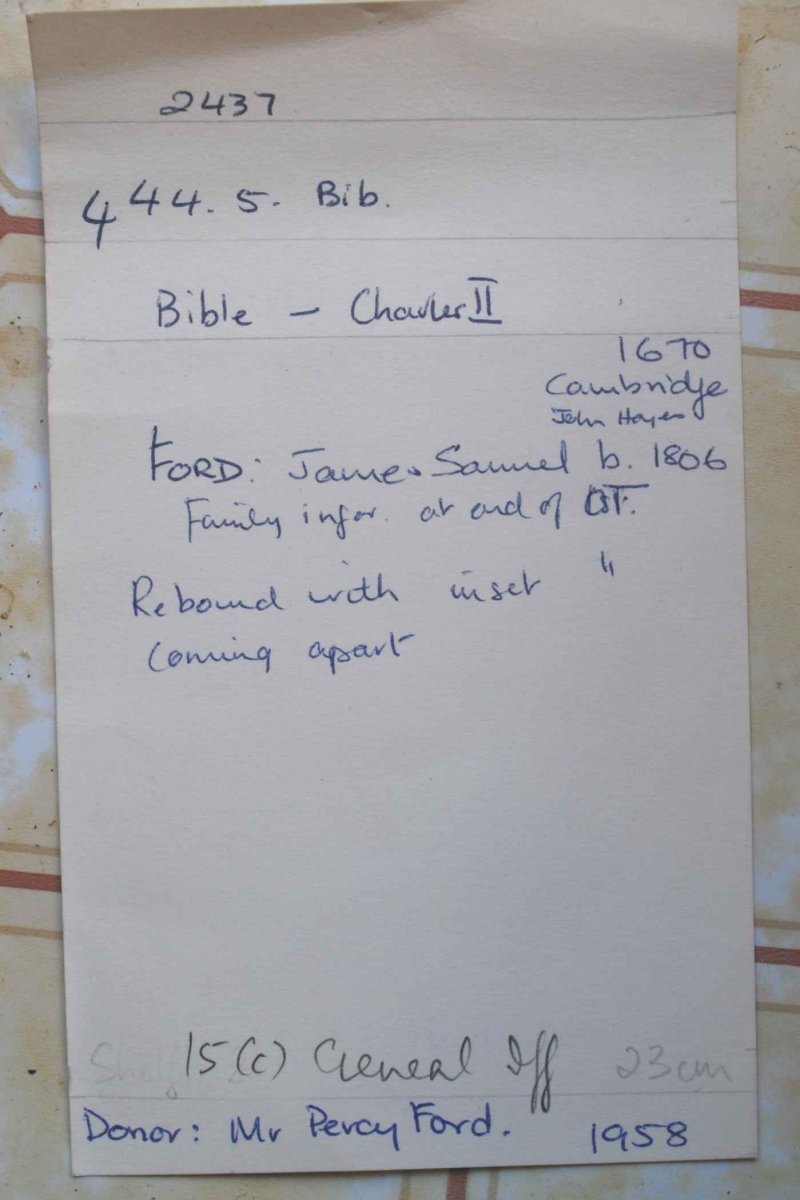 2437
444. 5. Bib.
Bible — Charles II
1670
Cambridge
John Hayes
FORD: James Samuel b. 1806
Family infor. at end of OT.
Rebound with inset "
Coming apart
Shelf 15(c) General Off 23cm
Donor: Mr Percy Ford. 1958